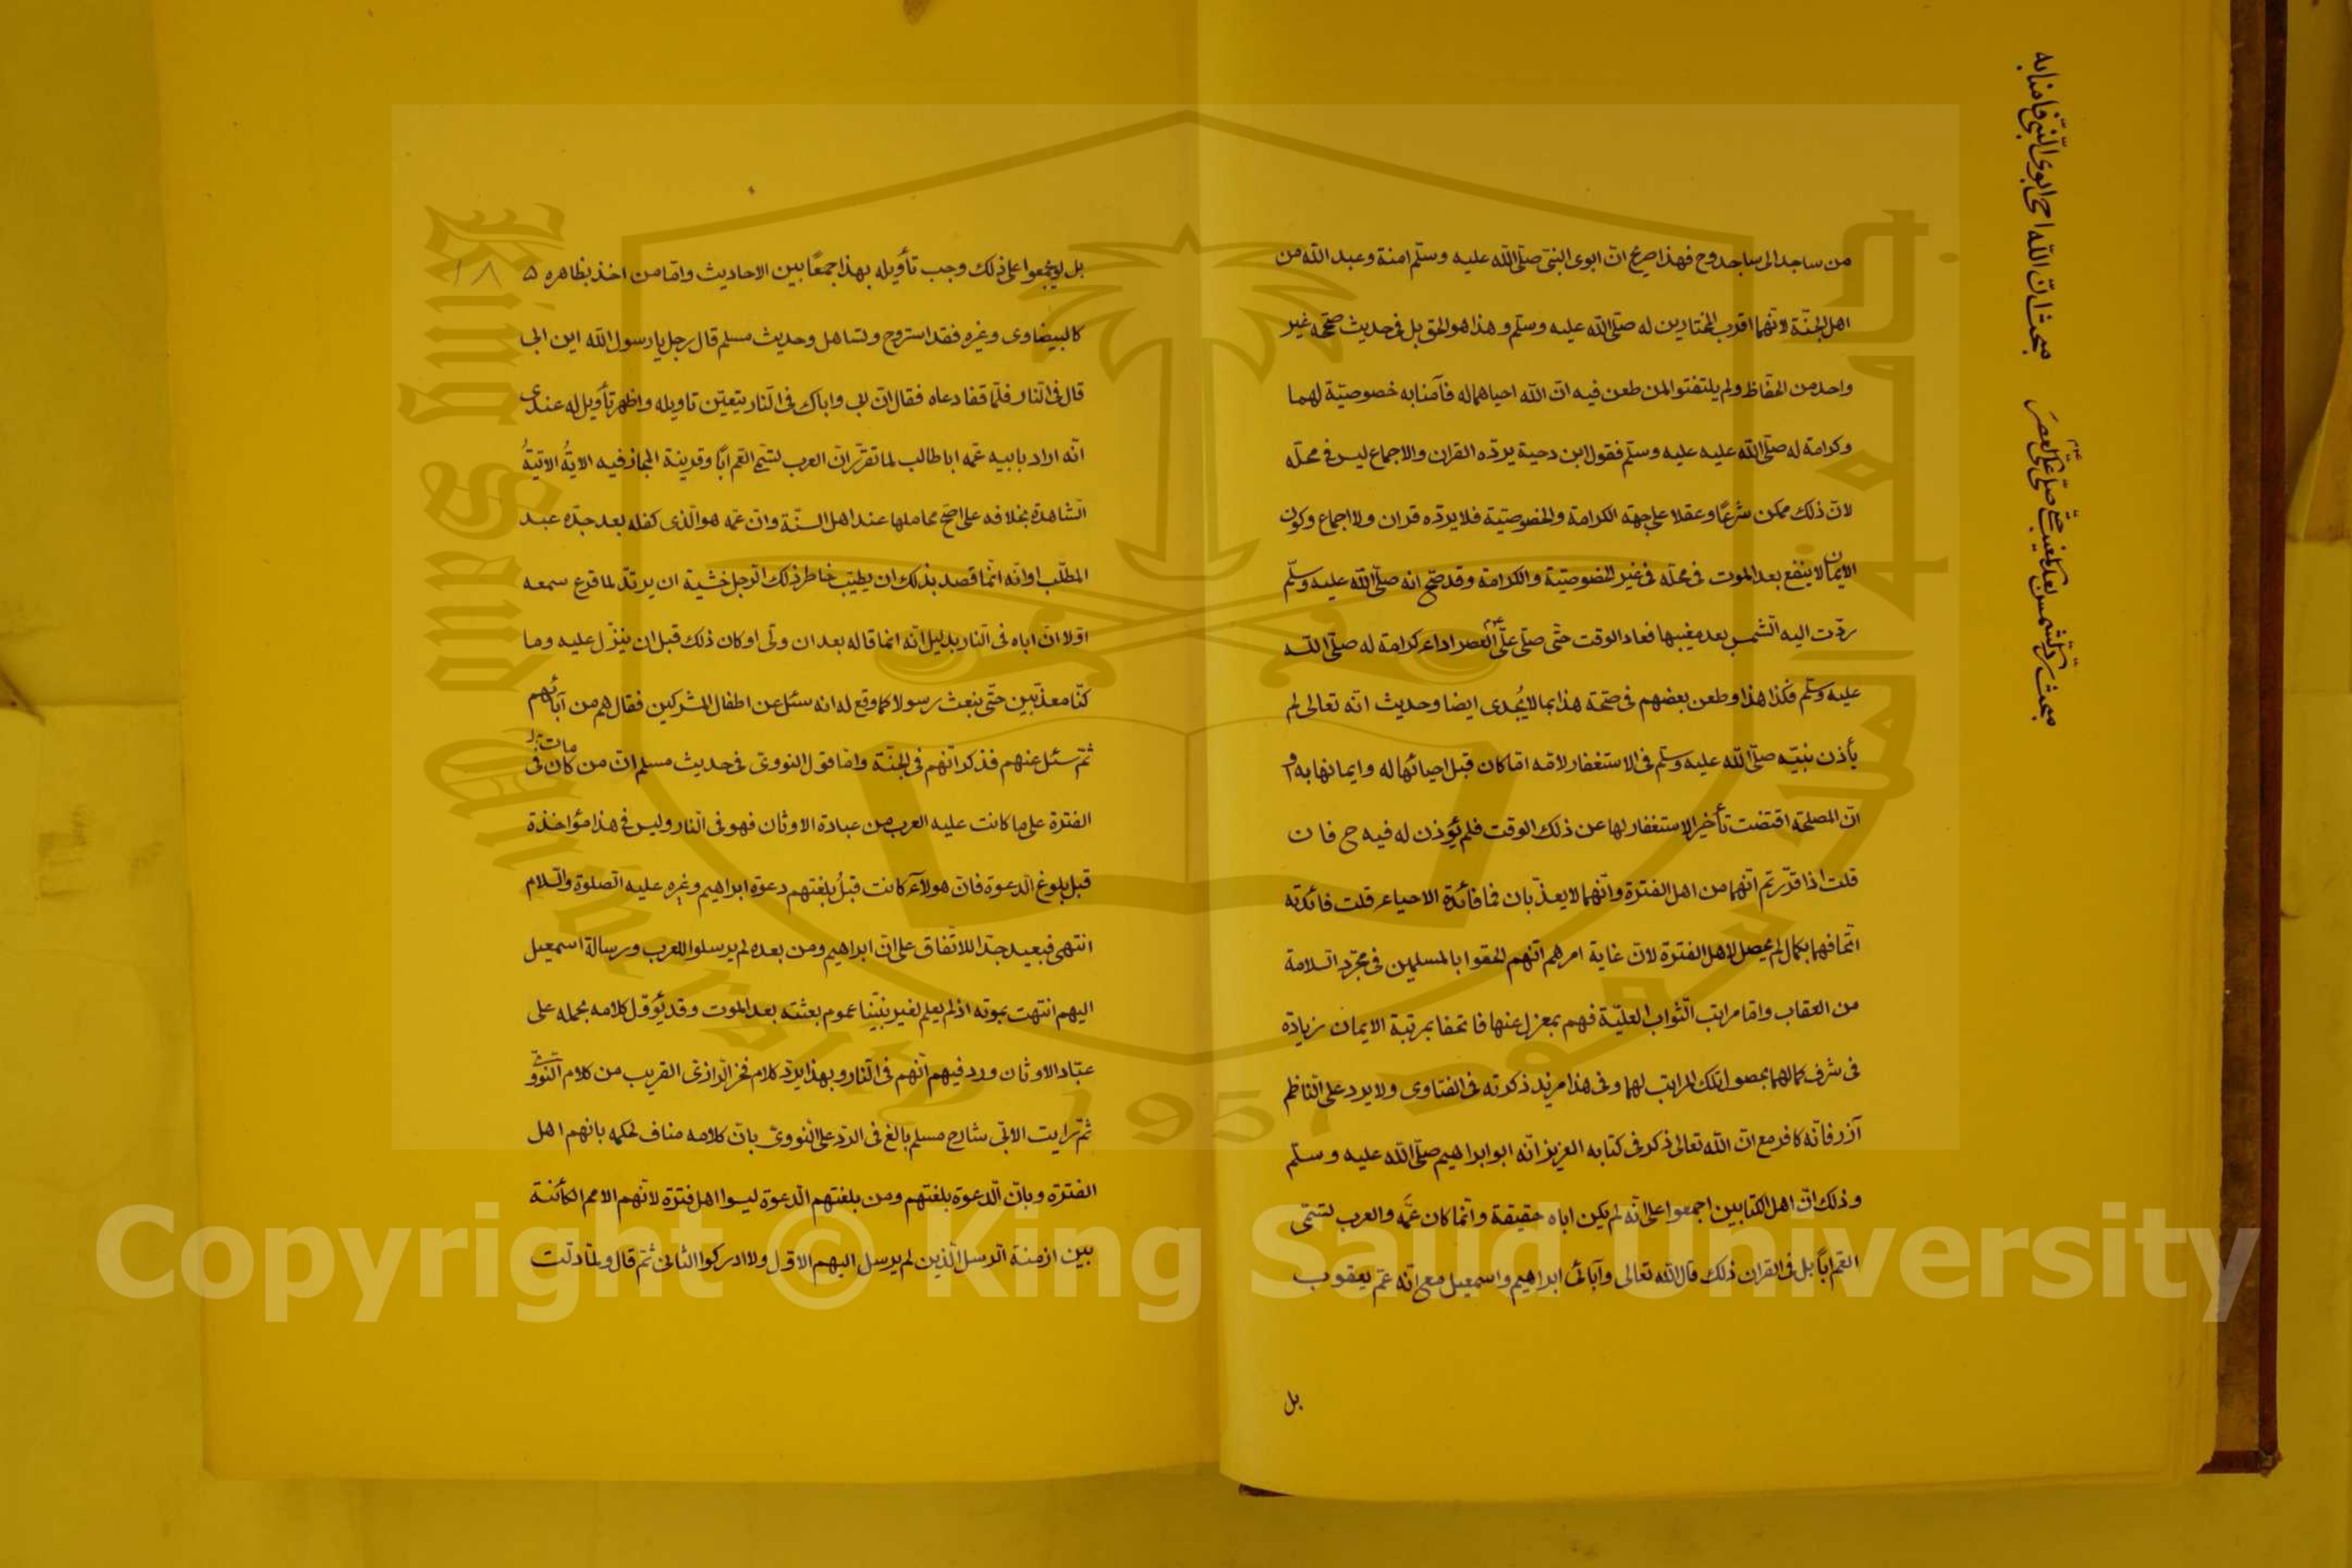 من ساجد الى ساجد وح فهذا صريح انّ ابوى النبىّ صلّى اللّه عليه وسلّم امنة وعبد اللّه من
اهل الجنّة لانّهما اقرب المختارين له صلّى اللّه عليه وسلّم وهذا هو الحق بل فى حديث صحّحه غير
واحد من الحفّاظ ولم يلتفتوا لمن طعن فيه انّ اللّه احياهما له فآمنا به خصوصيّة لهما
وكرامة له صلّى اللّه عليه عليه وسلّم فقول ابن دحية يردّه القران والاجماع ليس فى محلّه
لانّ ذلك ممكن شرعًا وعقلا على جهة الكرامة والخصوصيّة فلا يردّه قران ولا اجماع وكون
الايمان لا ينفع بعد الموت فى محلّه فى غير الخصوصيّة والكرامة وقد صحّ انه صلّى اللّه عليه وسلّم
ردّت اليه الشّمس بعد مغيبها فعاد الوقت حتّى صلّى علىّ العصر اداء كرامة له صلّى اللّه
عليه وسلّم فكذا هذا وطعن بعضهم فى صحّة هذا بما لا يُجدى ايضا وحديث انّه تعالى لم
يأذن نبيّه صلّى اللّه عليه وسلّم فى الاستغفار لامّه امّا كان قبل احيائها له وايمانها به او
انّ المصلحة اقتضت تأخير الاستغفار لها عن ذلك الوقت فلم يؤذن له فيه ح فان
قلت اذا قرّرتم انّهما من اهل الفترة وانّهما لا يعذّبان فما فائدة الاحياء قلت فائدته
اتحافهما بكمال لم يحصل لاهل الفترة لانّ غاية امرهم انّهم الحقوا بالمسلمين فى مجرّد السّلامة
من العقاب وامّا مراتب الثّواب العليّة فهم بمعزل عنها فاتحفا بمرتبة الايمان زيادة
فى شرف كمالهما بحصول تلك المراتب لهما وفى هذا مزيد ذكرته فى الفتاوى ولا يرد على النّاظم
آزر فانّه كافر مع انّ اللّه تعالى ذكر فى كتابه العزيز انّه ابو ابراهيم صلّى اللّه عليه وسلّم
وذلك انّ اهل الكتابين اجمعوا على انّه لم يكن اباه حقيقة وانّما كان عمَّه والعرب تسمّى
العّم اباً بل فى القران ذلك قال اللّه تعالى وآبائى ابراهيم واسمعيل مع انّه عمّ يعقوب
بل
مبحث انّ اللّه احى ابوى النّبىّ فامنا به
مبحث ردّ الشّمس بعد مغيب حتّى صلّى علىّ العصر
١٨
بل لو لم يجمعوا على ذلك وجب تأويله بهذا جمعًا بين الاحاديث وامّا من اخذ بظاهره
كالبيضاوى وغيره فقد استروح وتساهل وحديث مسلم قال رجل يا رسول اللّه اين ابى
قال فى النّار فلمّا قفا دعاه فقال انّ ابى واباك فى النّار يتعيّن تاويله واظهر تأويل له عندى
انّه اراد بابيه عمّه ابا طالب لما تقرّر انّ العرب تسمّى العّم اباً وقرينة المجاز فيه الايةُ الاتيةُ
الشّاهدة بخلافه على اصحّ محاملها عند اهل السنّة وانّ عمّه هو الّذى كفله بعد جدّه عبد
المطلّب او انّه انّما قصد بذلك ان يطيّب خاطر ذلك الرّجل خشية ان يرتدّ لما قرع سمعه
اوّلا انّ اباه فى النّار بدليل انّه انما قاله بعد ان ولّى او كان ذلك قبل ان ينزّل عليه وما
كنّا معذّبين حتّى نبعث رسولا كما وقع له انه سئل عن اطفال المشركين فقال هم من آبائهم
ثمّ سئل عنهم فذكر انّهم فى الجنّة وامّا قول النووىّ فى حديث مسلم انّ من كان مات فى
الفترة على ما كانت عليه العرب من عبادة الاوثان فهو فى النّار وليس فى هذا مؤاخذة
قبل بلوغ الدّعوة فانّ هولآء كانت قبلُ بلغتهم دعوة ابراهيم وغيره عليه الصّلوة والسّلام
انتهى فبعيد جدّا للاتّفاق على انّ ابراهيم ومن بعده لم يرسلوا للعرب ورسالة اسمعيل
اليهم انتهت بموته اذ لم يعلم لغير نبيّنا عموم بعثته بعد الموت وقد يؤوّل كلامه بحمله على
عبّاد الاوثان ورد فيهم انّهم فى النّار وبهذا يردّ كلام فخر الرّازىّ القريب من كلام النّووىّ
ثمّ رايت الابّى شارح مسلم بالغ فى الردّ على النّووىّ بانّ كلامه مناف لحكمه بانهم اهل
الفترة وبانّ الدّعوة بلغتهم ومن بلغتهم الدّعوة ليسوا اهل فترة لانّهم الامم الكائنة
بين ازمنة الرّسل الّذين لم يرسل اليهم الاوّل ولا ادركوا الثّانى ثمّ قال ولمّا دلّت
Copyright © King Saud University
King Saud University
1957